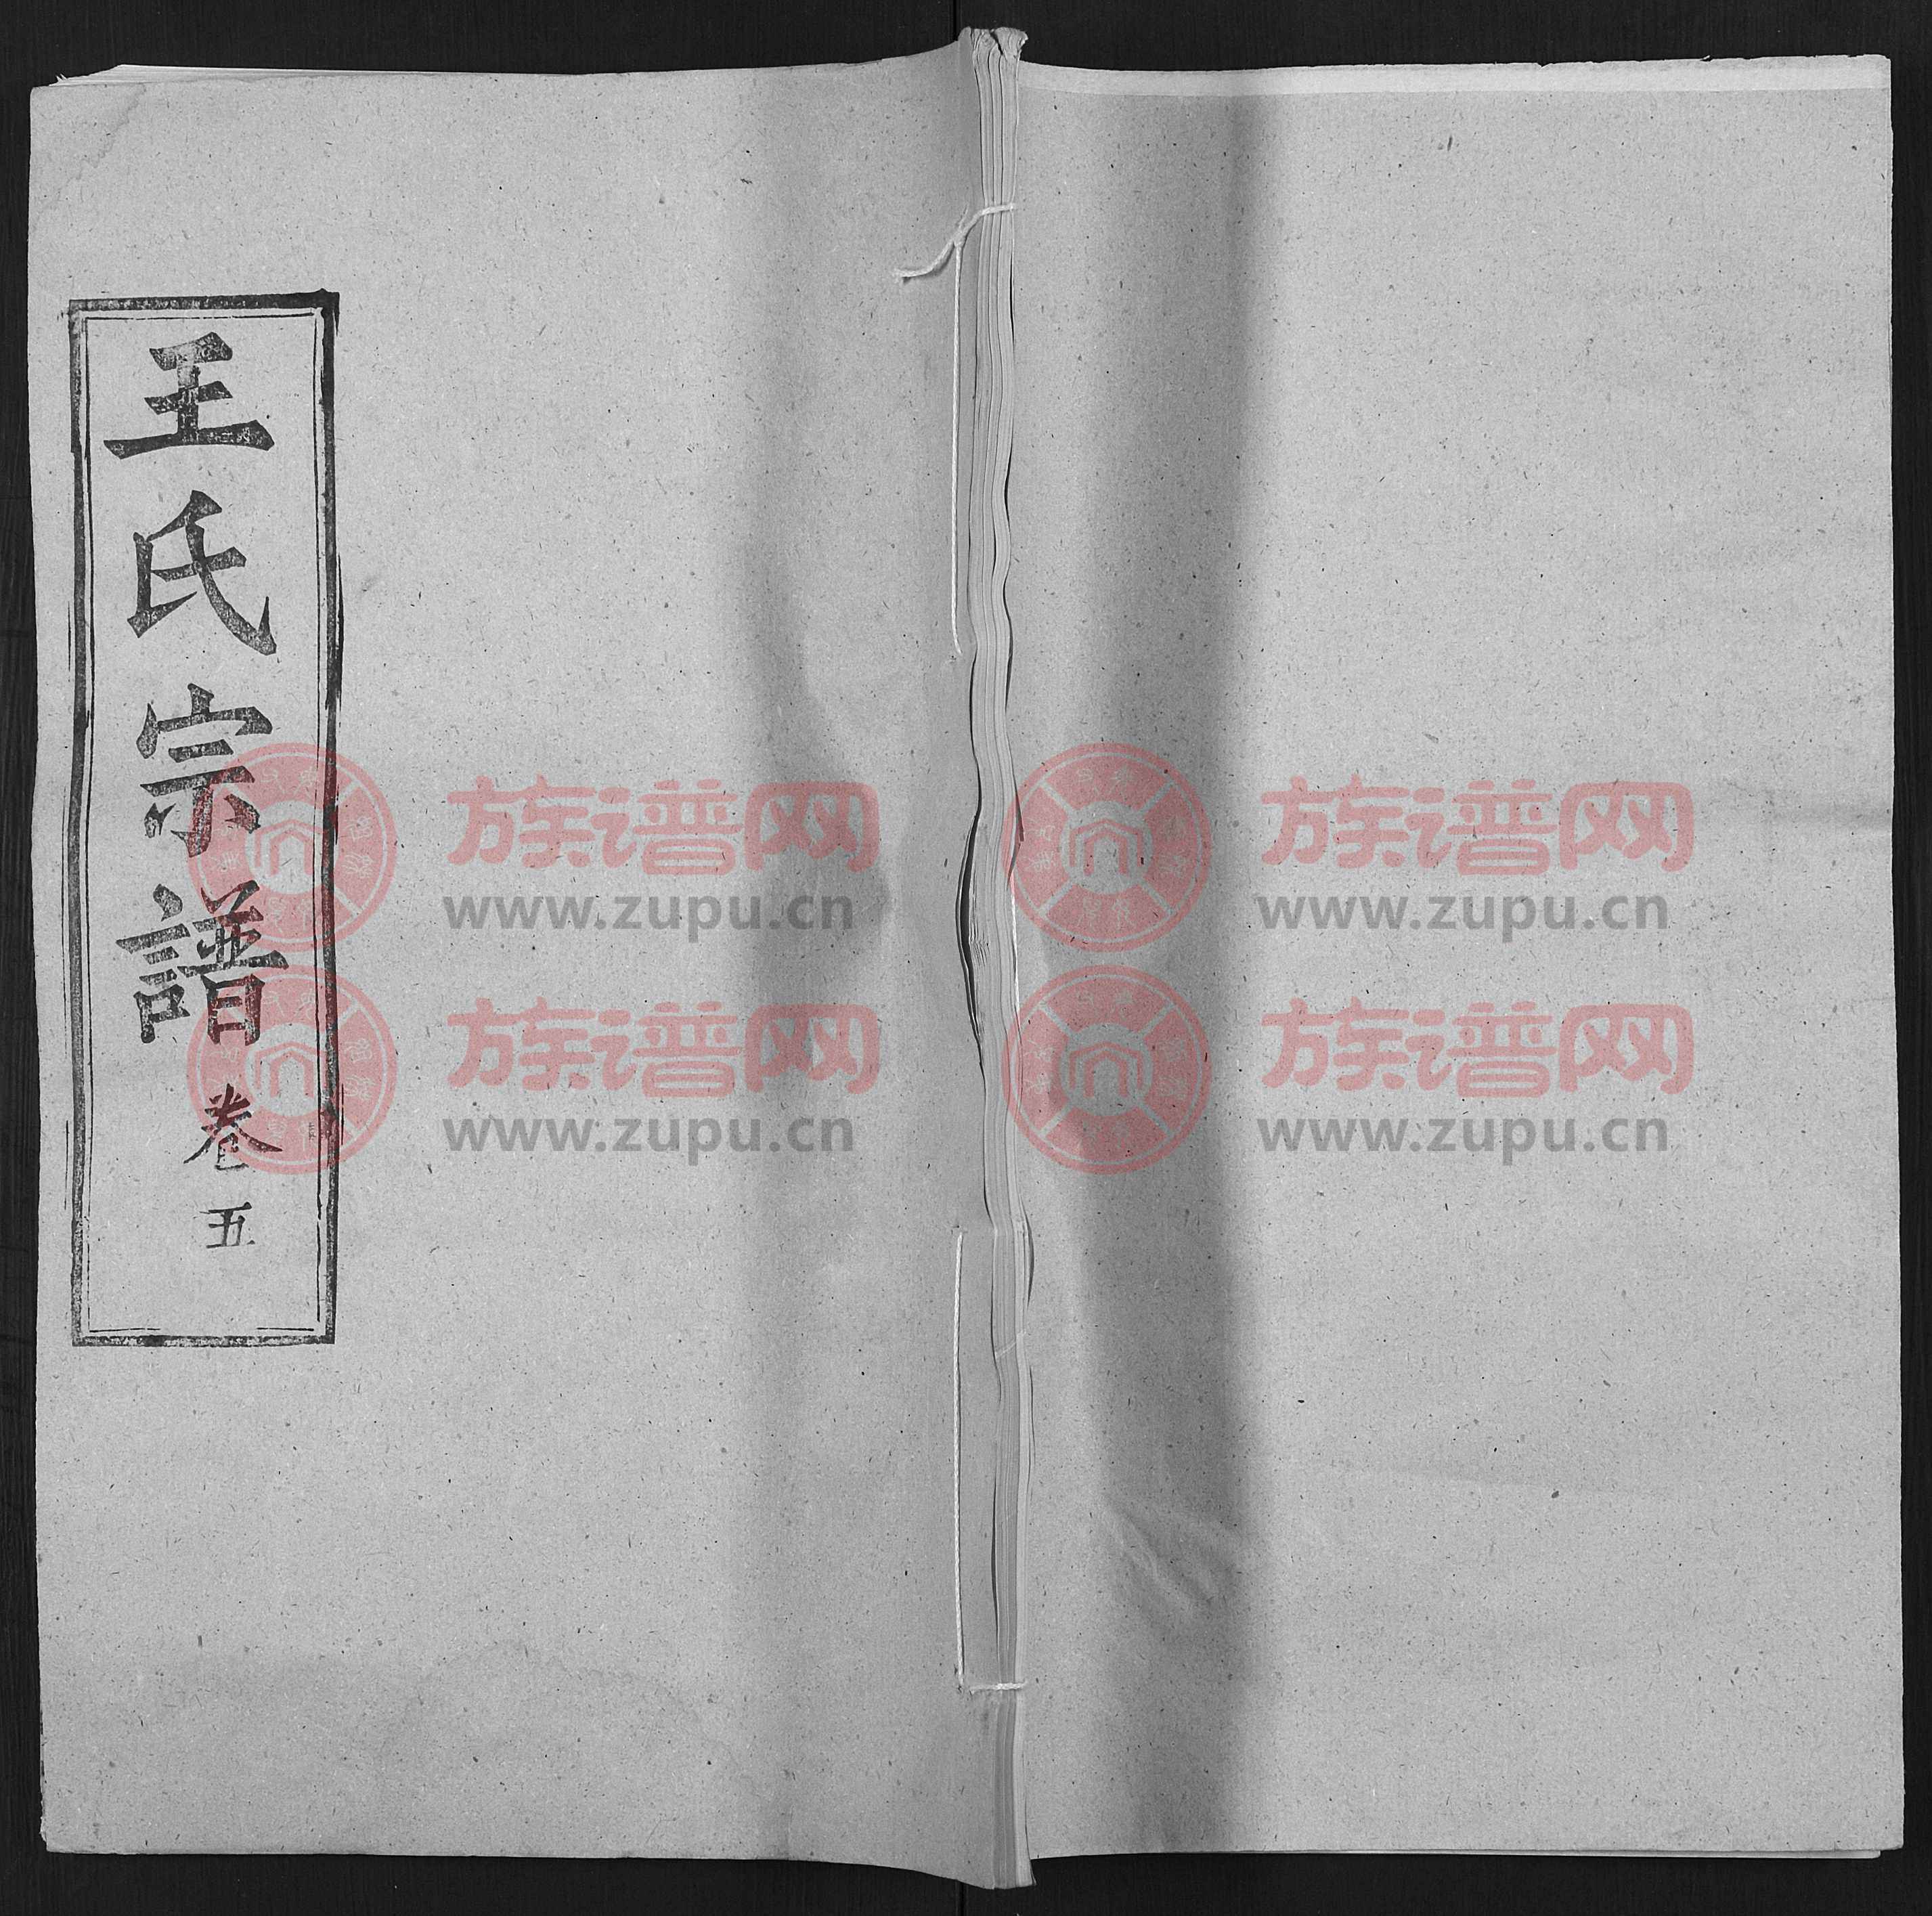 王氏宗譜 卷五
族谱网
www.zupu.cn
族谱网
www.zupu.cn
族谱网
www.zupu.cn
族谱网
www.zupu.cn